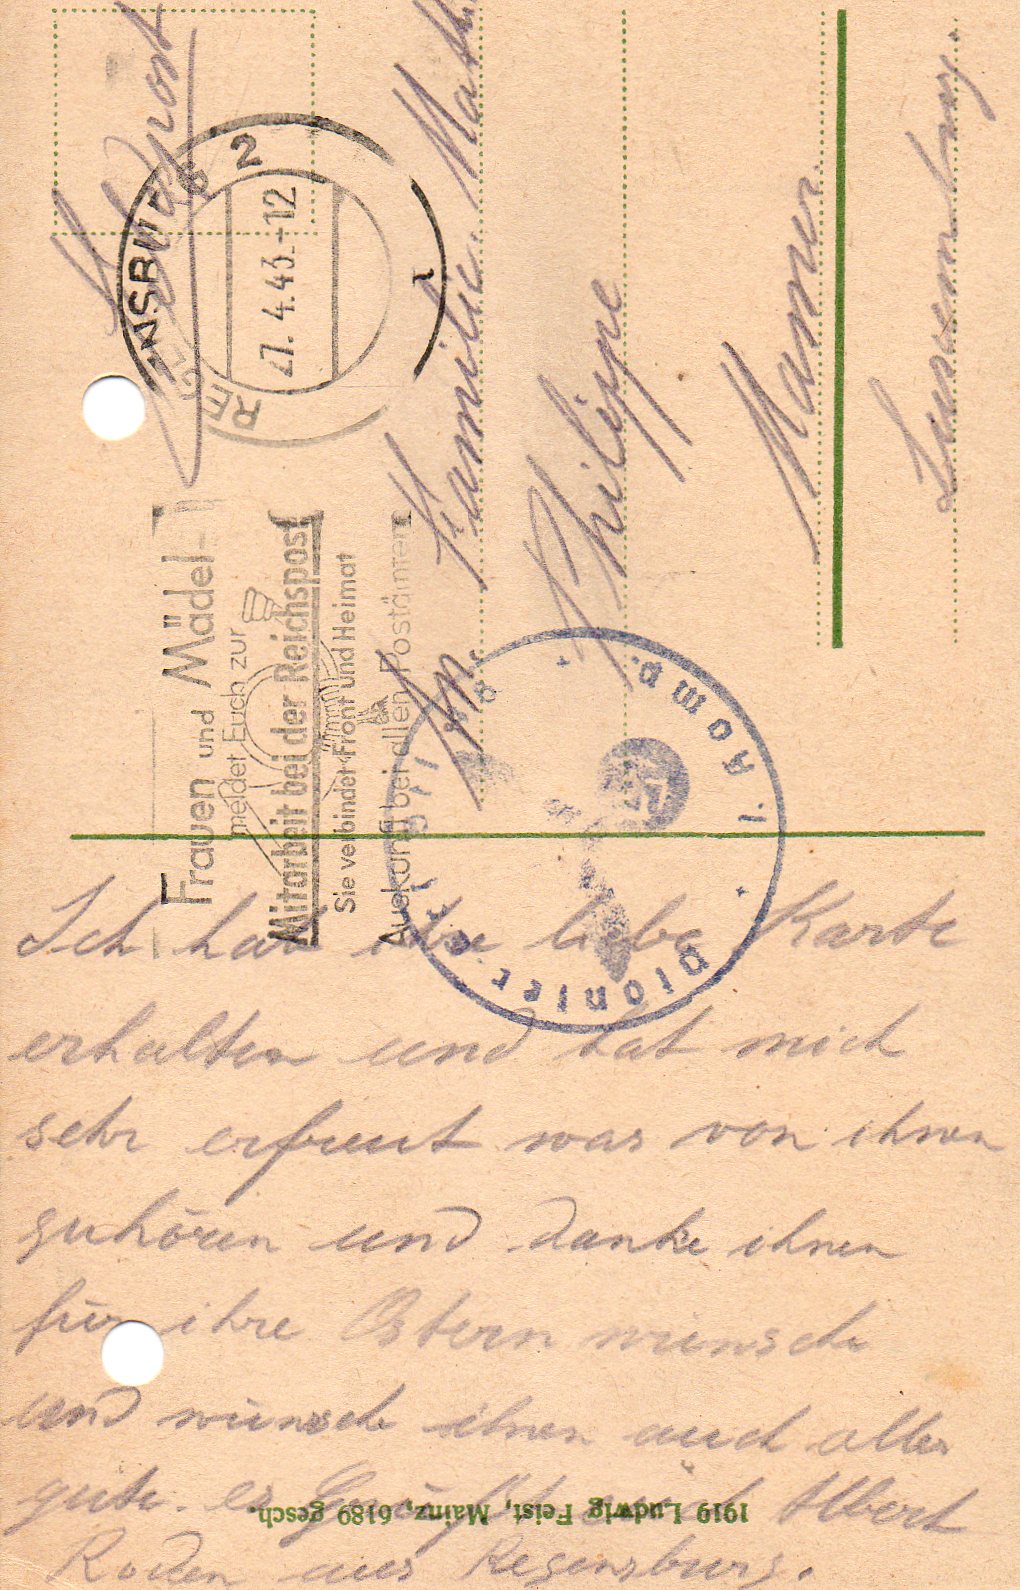 Feldpost
REGENSBURG 2
27.4.43.-12
1
Frauen und Mädel
meldet Euch zur
Mitarbeit bei der Reichspost
Sie verbindet Front und Heimat
Auskunft bei allen Postämtern
An Familie. Math.
Philippe
Mamer
Luxemburg.
1. Komp.
Pionier
Ich hab ihre liebe Karte
erhalten und hat mich
sehr erfreut was von ihnen
zuhören und danke ihnen
für ihre Ostern wünsche
und wünsche ihnen auch alles
gute. es Grüßt euch Albert
Roden aus Regensburg.
1919 Ludwig Feist, Mainz, 6189 gesch.